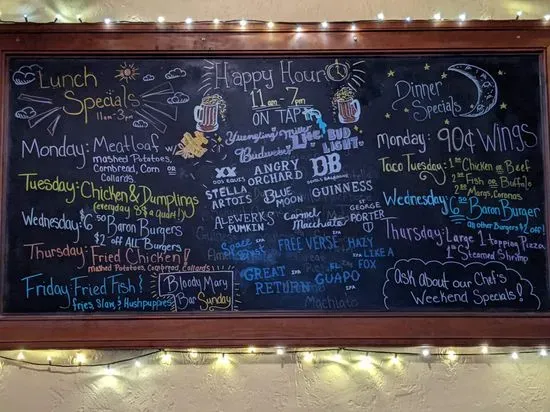 Lunch
Specials
11am-3pm
Monday: Meatloaf
mashed Potatoes,
Cornbread, Corn
or
Collards
Tuesday: Chicken & Dumplings
(everyday 8$ a quart!)
Wednesday: $6.50 Baron Burgers
$2- off ALL Burgers
Thursday: Fried Chicken!
mashed Potatoes, Cornbread, Collards
Friday: Fried Fish!
fries, Slaw, & Hushpuppies
Bloody Mary
Bar Sunday
Happy Hour
11am - 7pm
ON TAP
Yuengling Miller
Lite BUD
Budweiser LIGHT
XX
DOS EQUIS
ANGRY
ORCHARD
DB
STELLA
ARTOIS
BLUE
MOON
GUINNESS
ALEWERKS
PUMPKIN
Carmel
Macchiato
GEORGE
PORTER
Space
IPA
FREE VERSE
IPA
HAZY
LIKE A
FOX
IPA
GREAT
RETURN
IPA
EL
GUAPO
IPA
Machiato
Dinner
Specials
Monday: 90¢ WINGS
Taco Tuesday: Chicken or Beef
Fish or Buffalo
Margs, Coronas
Wednesday: $6 Baron Burger
all other Burgers $2 off!
Thursday: Large 1 topping Pizza
Steamed Shrimp
Ask about our Chef's
Weekend Specials!